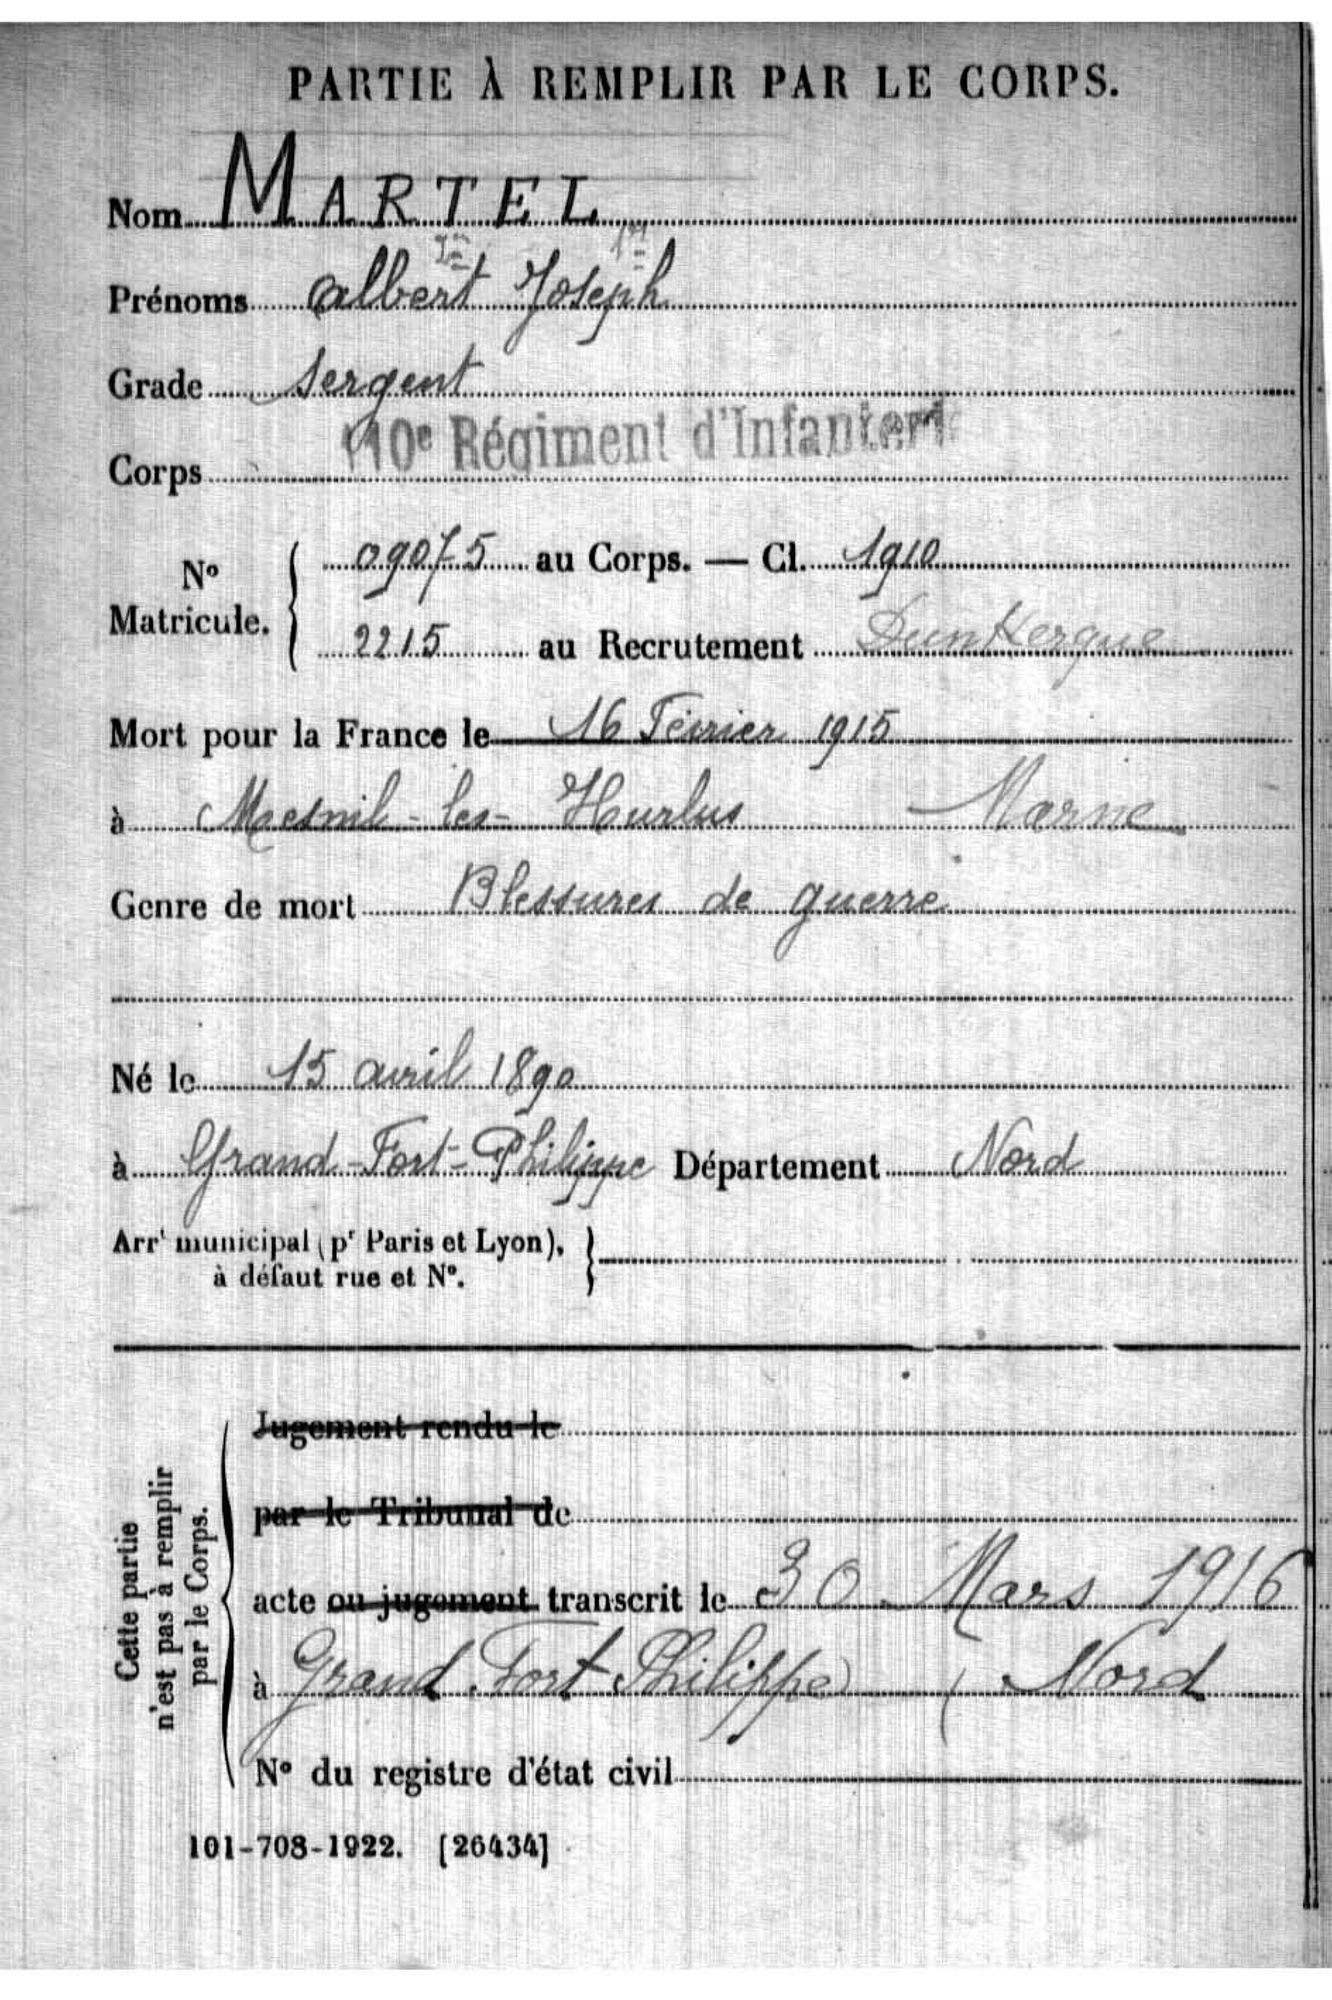 PARTIE À REMPLIR PAR LE CORPS.
Nom MARTEL
Prénoms Albert Joseph
Grade Sergent
Corps 110e Régiment d'Infanterie
No Matricule. { 09075 au Corps. — Cl. 1910
2215 au Recrutement Dunkerque
Mort pour la France le 16 Février 1915
à Mesnil-les-Hurlus Marne
Genre de mort Blessures de guerre
Né le 15 avril 1890
à Grand-Fort-Philippe Département Nord
Arrt municipal (pr Paris et Lyon),
à défaut rue et No.
Cette partie
n'est pas à remplir
par le Corps.
Jugement rendu le
par le Tribunal de
acte ou jugement transcrit le 30 Mars 1916
à Grand Fort Philippe (Nord
No du registre d'état civil
101-708-1922. [26434]